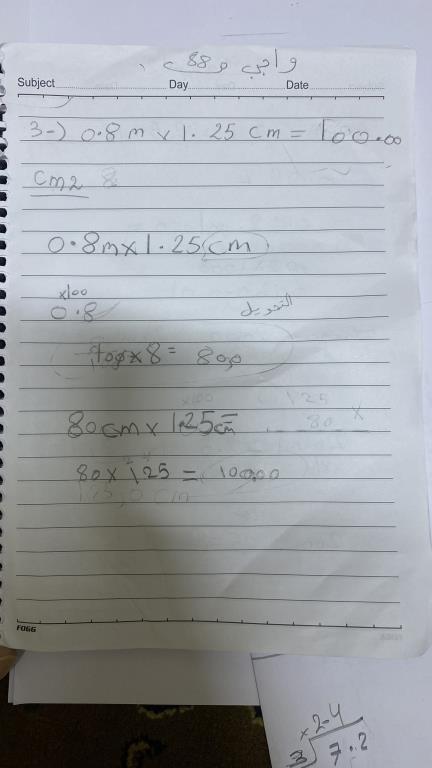 واجبي ص88
Subject Day Date
3-) 0.8 m x 1.25 cm = 100.00
cm2
0.8m x 1.25 cm
x100
0.8 التحويل
100 x 8 = 80,0
80 cm x 1.25 cm =
80 x 125 = 100,00
FOGG
x 2-4
3 7.2